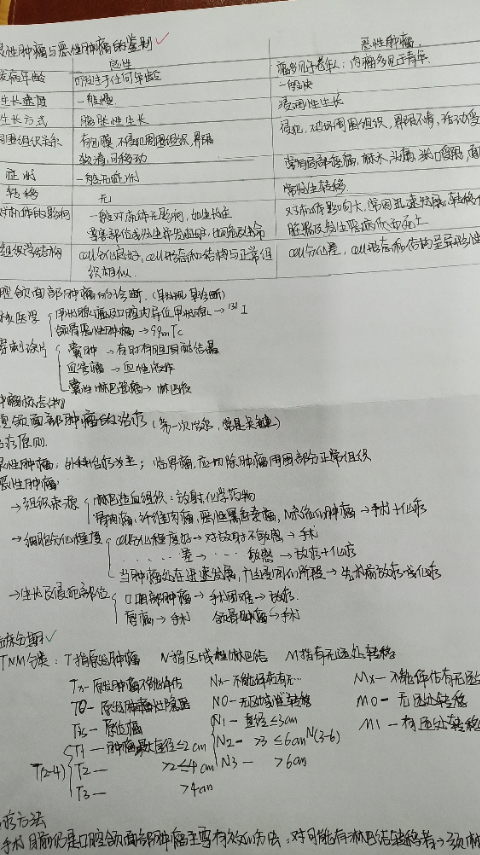 良性肿瘤与恶性肿瘤的鉴别
良性 恶性肿瘤
发病年龄 可发生于任何年龄 癌多见于老年人；肉瘤多见于青年
生长速度 一般慢 一般快
生长方式 膨胀性生长 浸润性生长
周围组织关系 有包膜，不侵犯周围组织，界限较清，可移动 侵犯、破坏周围组织，界限不清，活动受
症状 一般无症状 常有局部疼痛，麻木、头痛，张口受限，面
转移 无 常发生转移
对机体的影响 一般对机体无影响，如生长在要害部位或发生并发症时，也可危及生命 对机体影响大，常因迅速发展，转移
组织学结构 cell分化良好，cell形态和结构与正常组织相似 cell分化差，cell形态和结构呈异形性
口腔颌面部肿瘤的诊断
核医学 甲状腺癌及口腔内异位甲状腺→¹³¹I
颌骨恶性肿瘤→99mTc
穿刺涂片 囊肿→有时有胆固醇结晶
血管瘤→血性液体
囊性淋巴管瘤→淋巴液
口腔颌面部肿瘤的治疗（第一次治疗，常是关键）
治疗原则
良性肿瘤：外科治疗为主；临界瘤，应切除肿瘤周围部分正常组织
恶性肿瘤
→组织来源 淋巴造血组织：放射化学药物
骨肉瘤，纤维肉瘤，恶性黑色素瘤，神经系肿瘤→手术+化疗
→细胞分化程度 cell分化程度好→对放射不敏感→手术
······差→····敏感→放疗+化疗
当肿瘤处在迅速发展，广泛浸润阶段→先术前放疗或化疗
→生长及侵犯部位 口咽部肿瘤→手术困难→放疗
唇癌→手术 颌骨肿瘤→手术
临床分期
TNM分类：T指原发肿瘤 N指区域性淋巴结 M指有无远处转移
Tx—原发肿瘤不能评估 Nx—不能评估有无 Mx—不能评估有无远
T0—原发肿瘤 N0—无区域性转移 M0—无远处转移
Tis—原位癌 N1—直径≤3cm M1—有远处转移
T(1-4) T1—肿瘤最大直径≤2cm N2— >3 ≤6cm N(3-6)
T2— >2≤4cm N3— >6cm
T3— >4cm
治疗方法
手术 目前仍是口腔颌面部肿瘤主要有效的方法，对可能有淋巴结转移者→颈淋